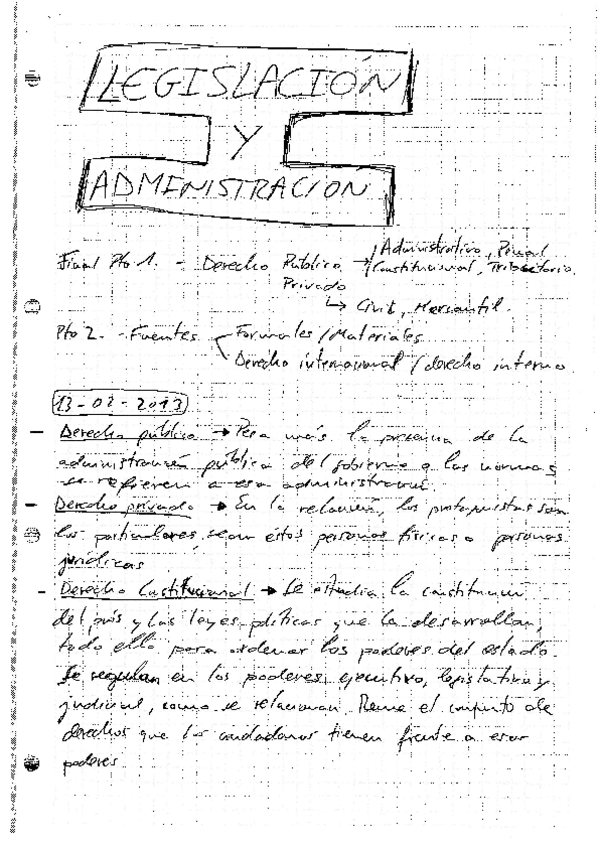 LEGISLACIÓN
Y
ADMINISTRACIÓN
Final Pto 1. - Derecho Público → Administrativo, Penal
Constitucional, Tributario.
Privado
↳ Civil, Mercantil.
Pto 2. - Fuentes Formales / Materiales
Derecho internacional / derecho interno
13-02-2013
- Derecho público → Pesa más la presencia de la
administración pública del gobierno o las normas
se refieren a esa administración.
- Derecho privado → En la relación, los protagonistas son
los particulares, sean éstos personas físicas o personas
jurídicas
- Derecho Constitucional → Se estudia la constitución
del país y las leyes políticas que la desarrollan,
todo ello para ordenar los poderes del estado.
Se regulan en los poderes, ejecutivo, legislativo y
judicial, como se relacionan. Reune el conjunto de
derechos que los ciudadanos tienen frente a esos
poderes